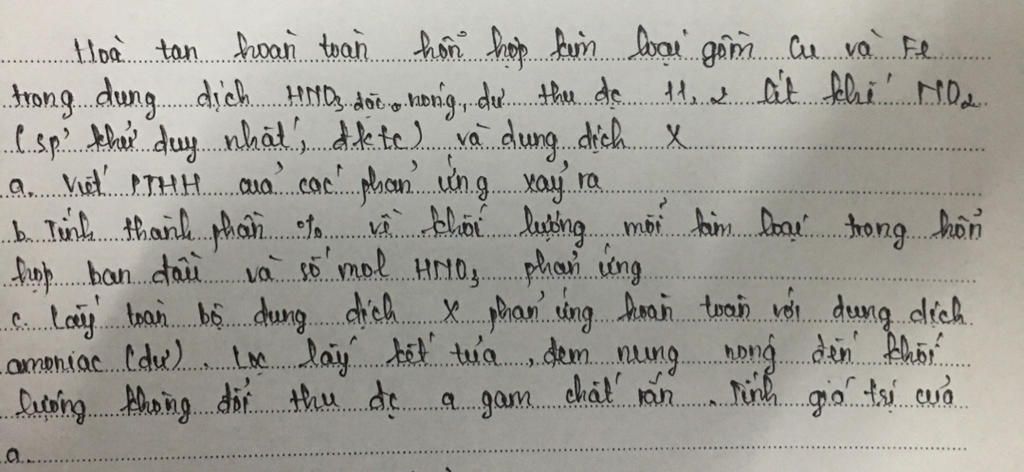 Hoà tan hoàn toàn hỗn hợp kim loại gồm Cu và Fe
trong dung dịch HNO3 đặc, nóng, dư thu đc 11,2 lít khí NO2
(sp' khử duy nhất, đktc) và dung dịch X
a. Viết PTHH của các phản ứng xảy ra
b. Tính thành phần % về khối lượng mỗi kim loại trong hỗn
hợp ban đầu và số mol HNO3 phản ứng
c. Lấy toàn bộ dung dịch X phản ứng hoàn toàn với dung dịch
amoniac (dư). Lọc lấy kết tủa, đem nung nóng đến khối
lượng không đổi thu đc a gam chất rắn. Tính giá trị của
a.